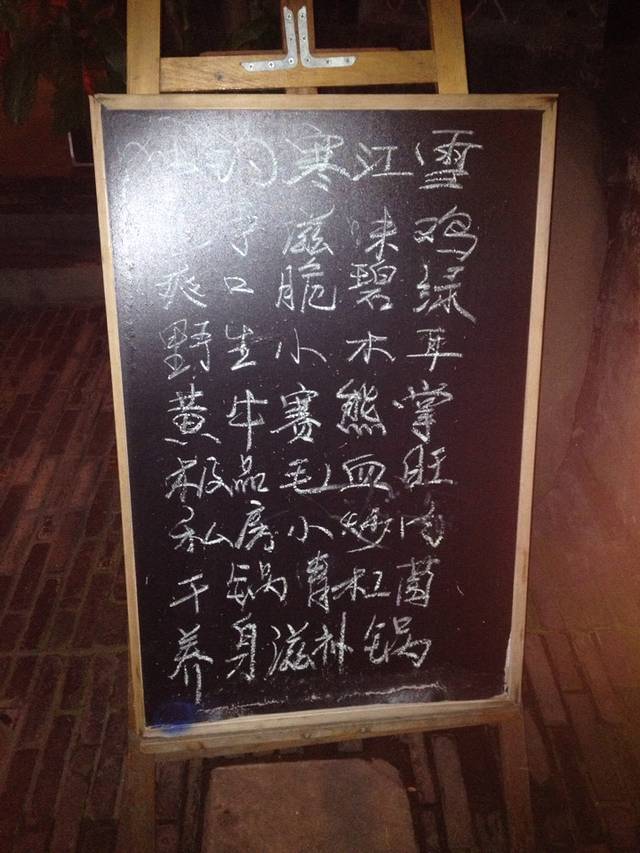 钓寒江雪
子滋味鸡
爽口脆碧绿
野生小木耳
黄牛赛熊掌
极品毛血旺
私房小炒肉
干锅青杠菌
养身滋补锅